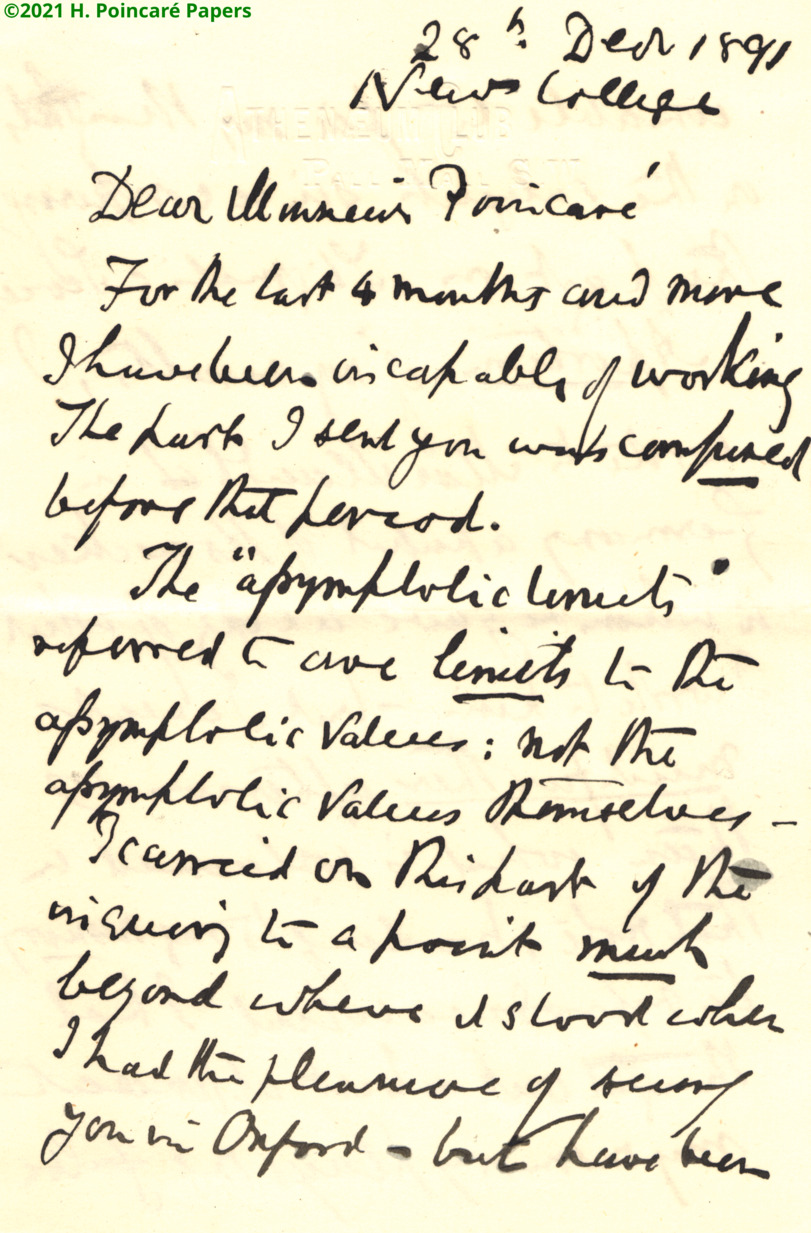 ©2021 H. Poincaré Papers
28th Decr 1891
New College
Dear Monsieur Poincaré
For the last 4 months and more
I have been incapable of working
The part I sent you was composed
before that period.
The "asymptotic limits"
referred to are limits to the
asymptotic values: not the
asymptotic values themselves –
I carried on this part of the
inquiry to a point much
beyond where it stood when
I had the pleasure of seeing
you in Oxford – but have been